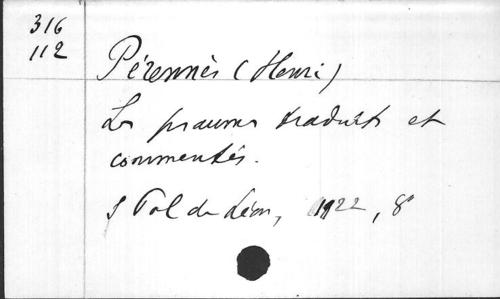 316
112
Pérennès (Henri)
Les psaumes traduits et
commentés.
S Pol de Léon, 1922, 8°